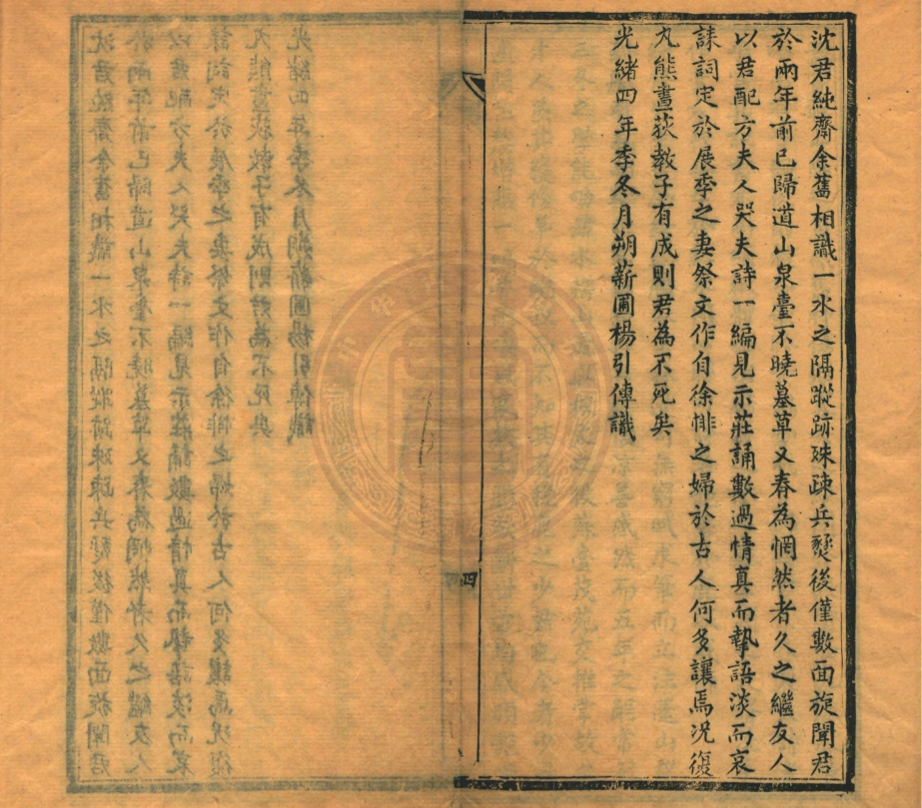 沈君純齋余舊相識一水之隔蹤跡殊疎兵燹後僅數面旋聞君
於兩年前已歸道山泉臺不曉墓草又春為惘然者久之繼友人
以君配方夫人哭夫詩一編見示莊誦數過情真而摯語淡而哀
誄詞定於展季之妻祭文作自徐悱之婦於古人何多讓焉況復
丸熊畫荻教子有成則君為不死矣
光緒四年季冬月朔薪圃楊引傳識
四